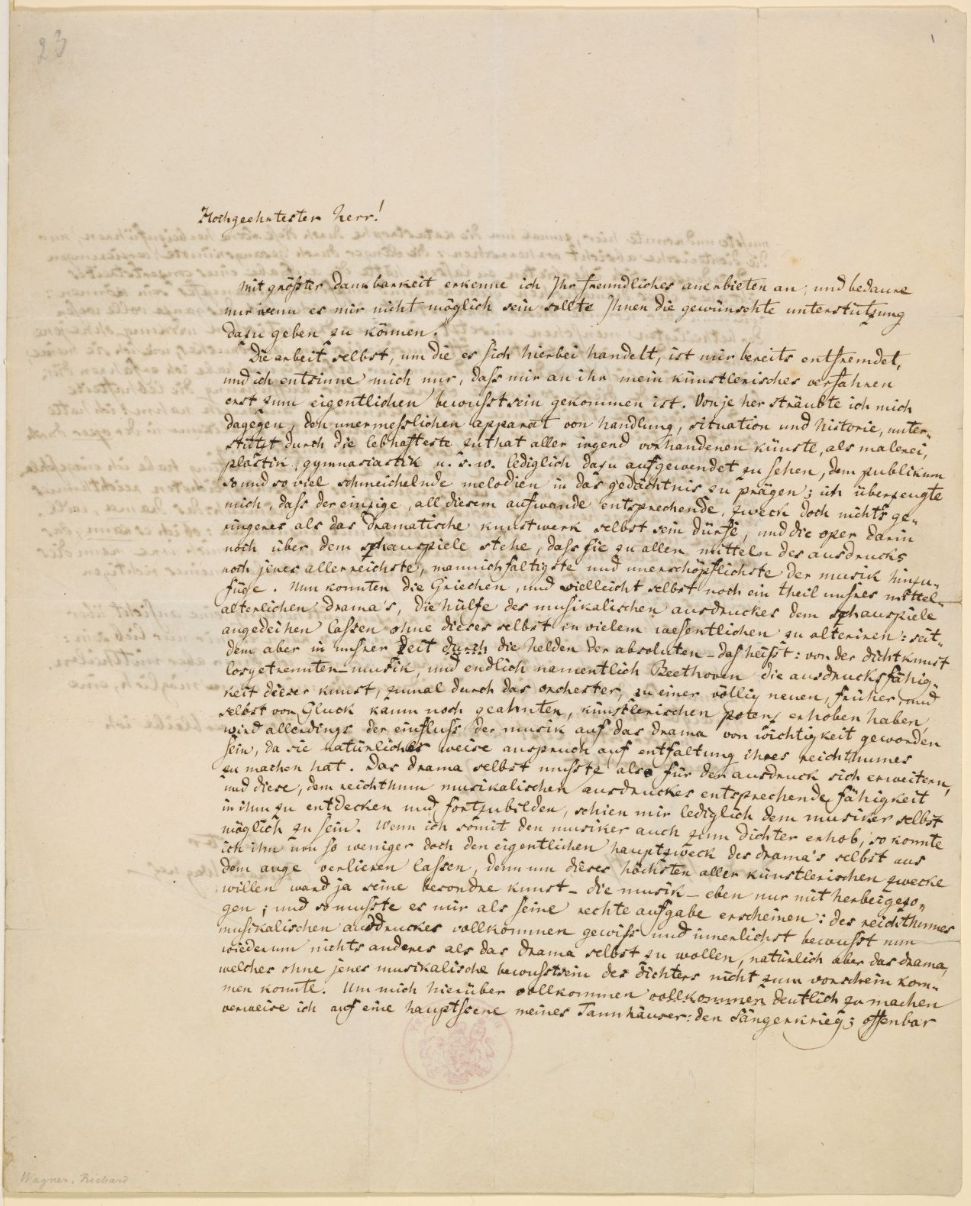 23
Hochgeehrtester Herr!
Mit größter dankbarkeit erkenne ich Ihr freundliches anerbieten an, und bedaure
nur wenn es mir nicht möglich sein sollte Ihnen die gewünschte unterstützung
dazu geben zu können.
Die arbeit selbst, um die es sich hierbei handelt, ist mir bereits entfremdet,
und ich entsinne mich nur, dass mir an ihr mein künstlerisches verfahren
erst zum eigentlichen bewusstsein gekommen ist. Von je her sträubte ich mich
dagegen, den unermesslichen apparat von handlung, situation und historie, unter-
stützt durch die lebhafteste zuthat aller irgend vorhandenen künste, als malerei,
plastik, gymnasiastik u. s. w. lediglich dazu aufgewendet zu sehen, dem publikum
so und so viel schmeichelnde melodien in das gedächtnis zu prägen; ich überzeugte
mich, dass der einzige, all diesem aufwande entsprechende, zweck doch nichts ge-
ringeres als das dramatische kunstwerk selbst sein dürfe, und die oper darin
noch über dem schauspiele stehe, dass sie zu allen mitteln des ausdrucks
noch jenes allerreichste, mannichfaltigste und unerschöpflichste der musik hinzu-
füge. Nun konnten die Griechen, und vielleicht selbst noch ein theil unsres mittel-
alterlichen drama's, die hülfe des musikalischen ausdruckes dem schauspiele
angedeihen lassen ohne dieses selbst in vielem wesentlichen zu alteriren: seit
dem aber in unsrer zeit durch die helden der absoluten – das heisst: von der dichtkunst
losgetrennten – musik, und endlich namentlich Beethoven die ausdrucksfähig-
keit dieser kunst, zumal durch das orchester, zu einer völlig neuen, früher und
selbst von Gluck kaum noch geahnten, künstlerischen potenz erhoben haben,
wird allerdings der einfluss der musik auf das drama von wichtigkeit geworden
sein, da sie natürlicher weise anspruch auf entfaltung ihres reichthumes
zu machen hat. Das drama selbst musste also für den ausdruck sich erweitern,
und diese, dem reichthum musikalischen ausdruckes entsprechende fähigkeit
in ihm zu entdecken und fortzubilden, schien mir lediglich dem musiker selbst
möglich zu sein. Wenn ich somit den musiker auch zum dichter erhob, so konnte
ich ihn um so weniger doch den eigentlichen hauptzweck des drama's selbst aus
dem auge verlieren lassen, denn um dieses höchsten aller künstlerischen zwecke
willen ward ja seine besondre kunst – die musik – eben nur mit herbeigezo-
gen; und so musste es mir als seine rechte aufgabe erscheinen: des reichthumes
musikalischen ausdruckes vollkommen gewiss und innerlichst bewusst nun
wiederum nichts anderes als das drama selbst zu wollen, natürlich aber das drama,
welches ohne jenes musikalische bewusstsein des dichters nicht zum vorschein kom-
men konnte. Um mich hierüber vollkommen vollkommen deutlich zu machen
verweise ich auf eine hauptscene meines Tannhäuser: den Sängerkrieg; offenbar
Wagner, Richard